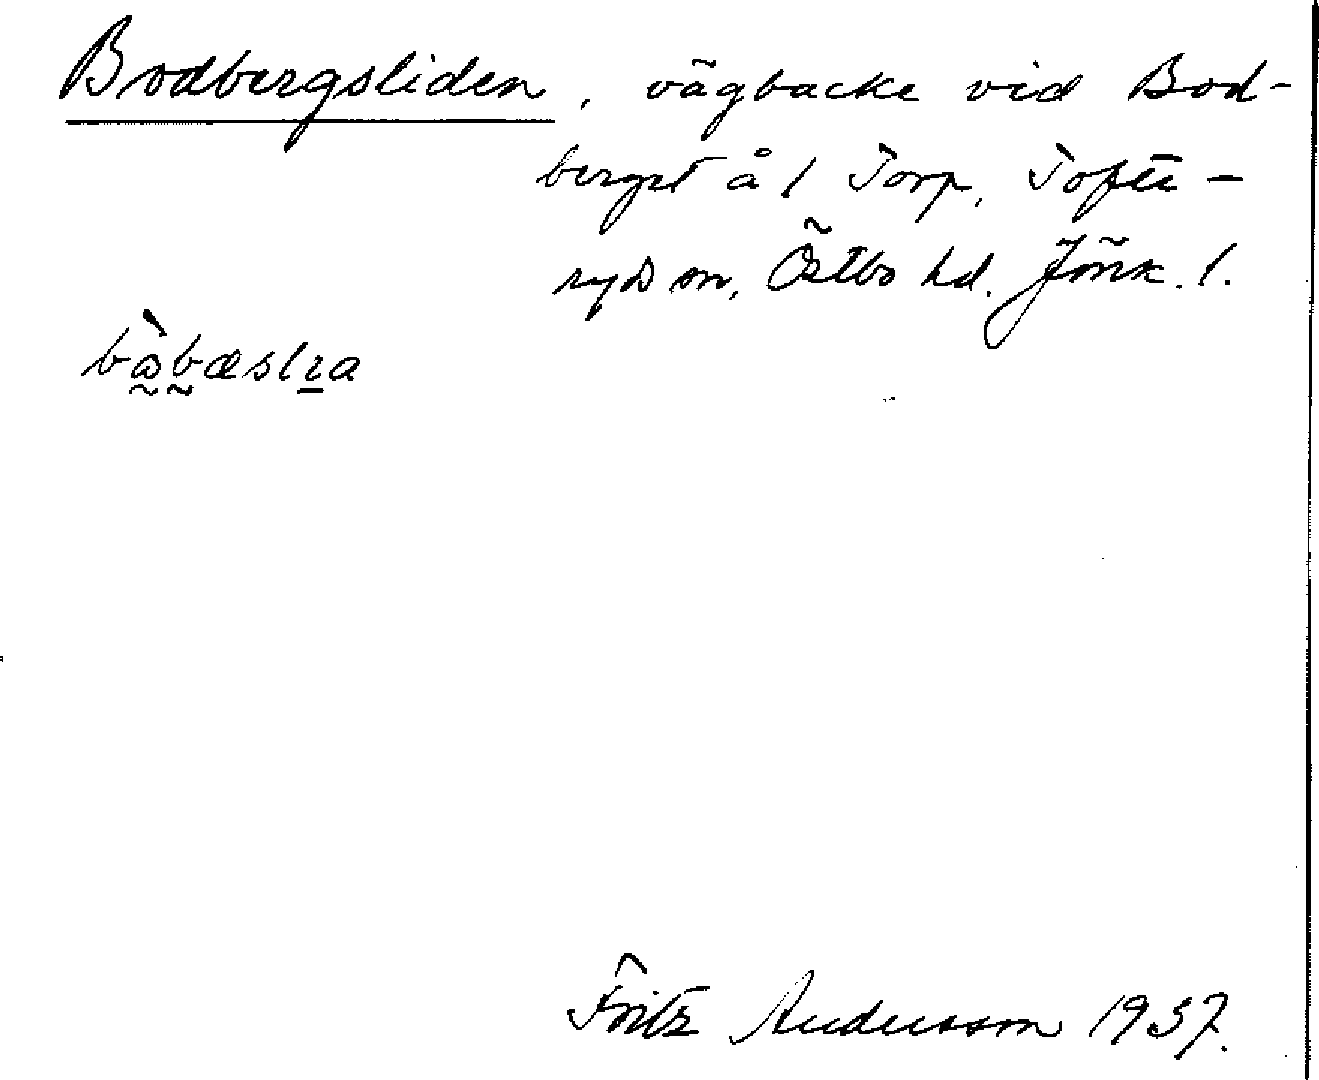 Bodbergsliden, vägbacke vid Bod-
berget å 1 Torp, Tofte-
ryds sn, Östbo hd. Jönk. l.
Fritz Andersson 1937.